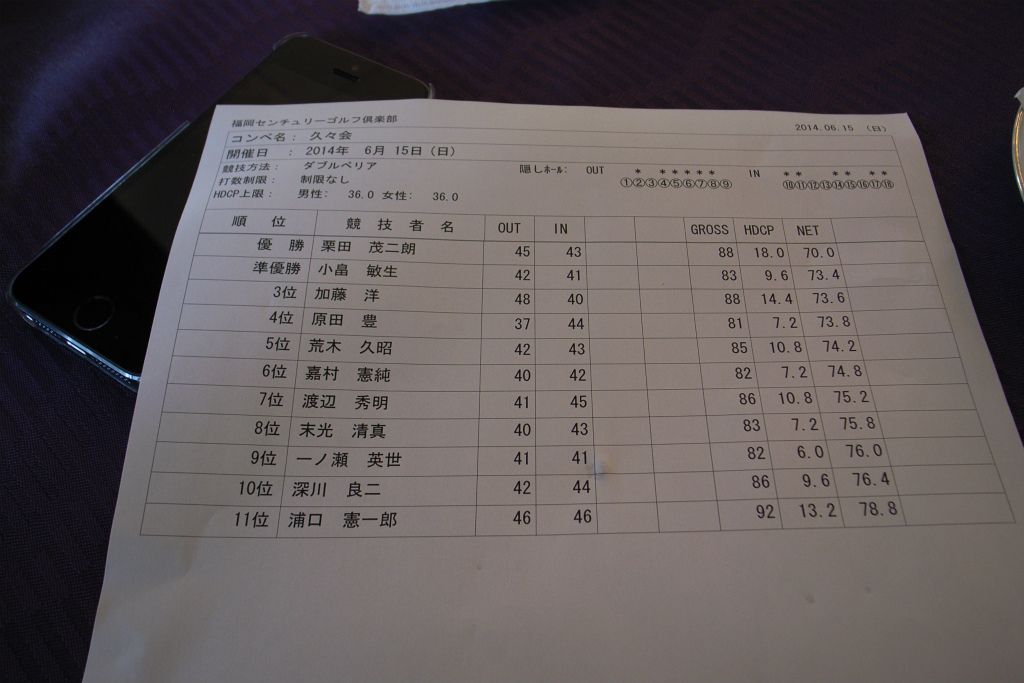 福岡センチュリーゴルフ倶楽部 2014.06.15 （日）
コンペ名： 久々会
開催日 ： 2014年 6月 15日（日）
競技方法： ダブルペリア 隠しﾎｰﾙ: OUT * * * * * * IN * * * * * *
打数制限： 制限なし ①②③④⑤⑥⑦⑧⑨ ⑩⑪⑫⑬⑭⑮⑯⑰⑱
HDCP上限： 男性: 36.0 女性: 36.0
順 位 競 技 者 名 OUT IN GROSS HDCP NET
優 勝 栗田 茂二朗 45 43 88 18.0 70.0
準優勝 小畠 敏生 42 41 83 9.6 73.4
3位 加藤 洋 48 40 88 14.4 73.6
4位 原田 豊 37 44 81 7.2 73.8
5位 荒木 久昭 42 43 85 10.8 74.2
6位 嘉村 憲純 40 42 82 7.2 74.8
7位 渡辺 秀明 41 45 86 10.8 75.2
8位 末光 清真 40 43 83 7.2 75.8
9位 一ノ瀬 英世 41 41 82 6.0 76.0
10位 深川 良二 42 44 86 9.6 76.4
11位 浦口 憲一郎 46 46 92 13.2 78.8